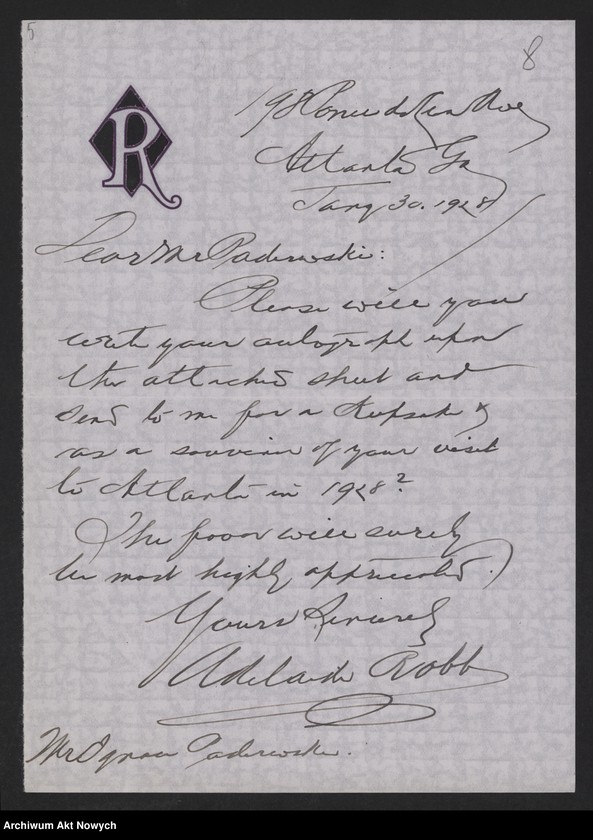 5
8
R
198 Ponce de Leon Ave
Atlanta Ga
Jany 30. 1928
Dear Mr Paderewski:
Please will you
write your autograph upon
the attached sheet and
send to me for a Keepsake &
as a souvenir of your visit
to Atlanta in 1928?
The favor will surely
be most highly appreciated.
Yours Sincerely
Adelaide Robb
Mr Ignace Paderewski.
Archiwum Akt Nowych